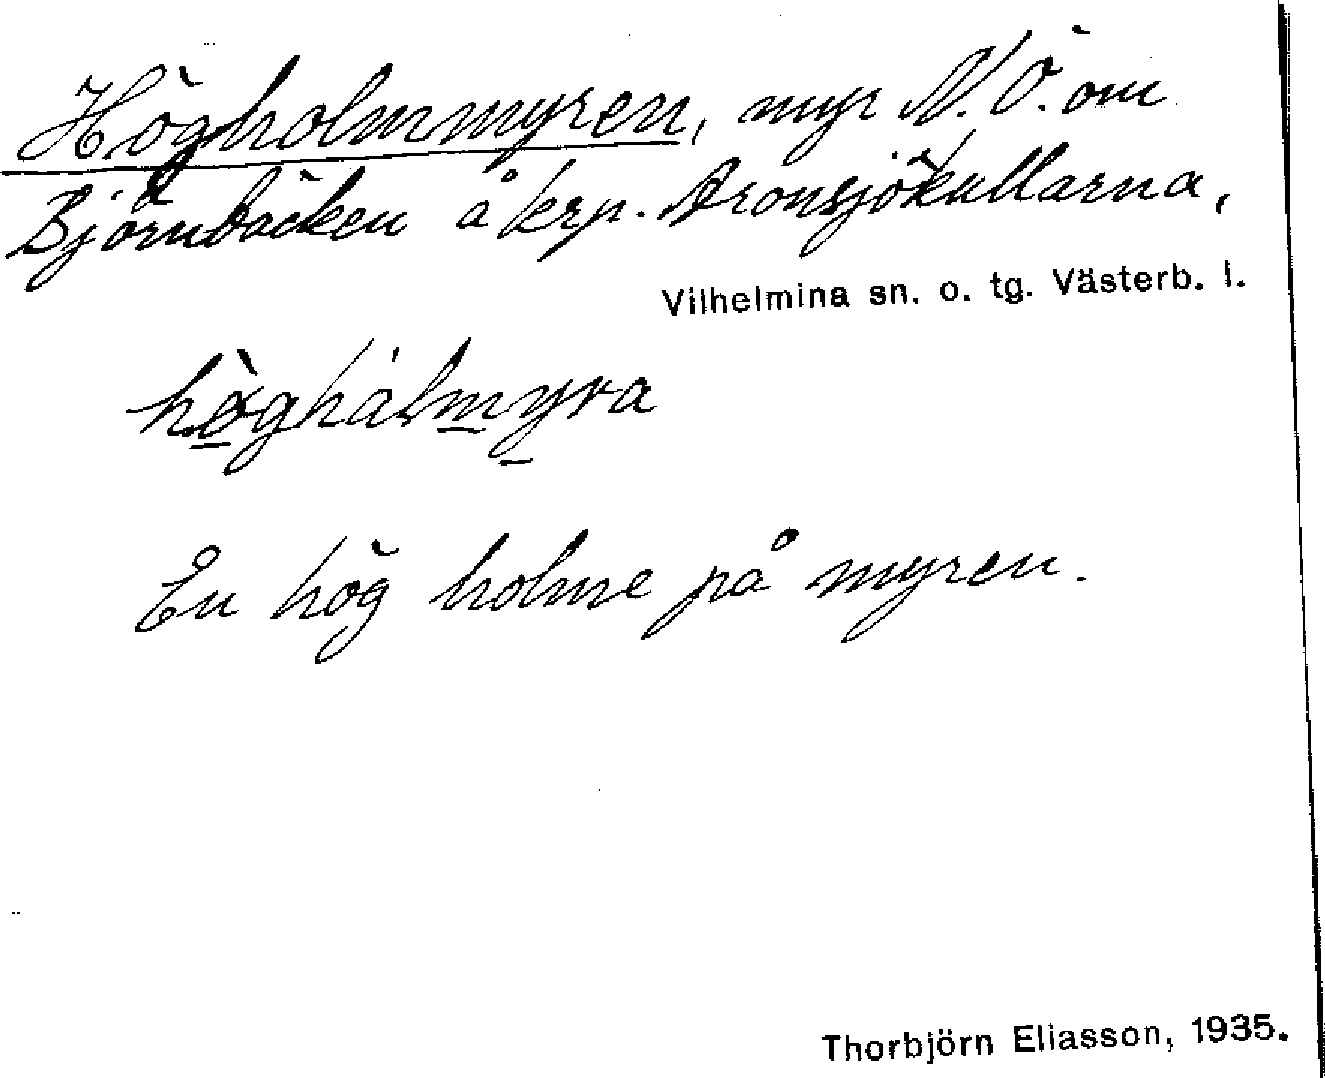 Högholmmyren, myr N.Ö. om
Björnbäcken å krp. Aronsjökullarna,
Vilhelmina sn. o. tg. Västerb. l.
hö̀ghålmyra
En hög holme på myren.
Thorbjörn Eliasson, 1935.